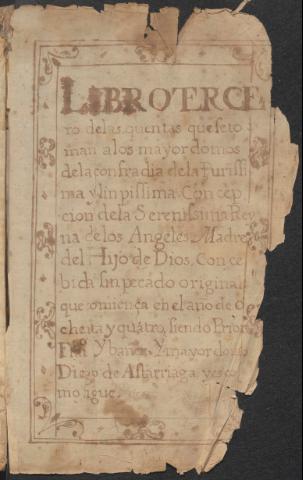 LIBRO TERCE
ro delas quentas que se to
man alos mayordomos
dela confradia dela Purissi
ma y linpissima Concep
cion dela Serenissima Rey
na de los Angeles Madre
del Hijo de Dios, Conce
bida sin pecado original
que comiença en el año de o
cheita y quatro, siendo Prior
Ybañez Y mayordomo
Diego de Astarriaga y es co
mo sigue.